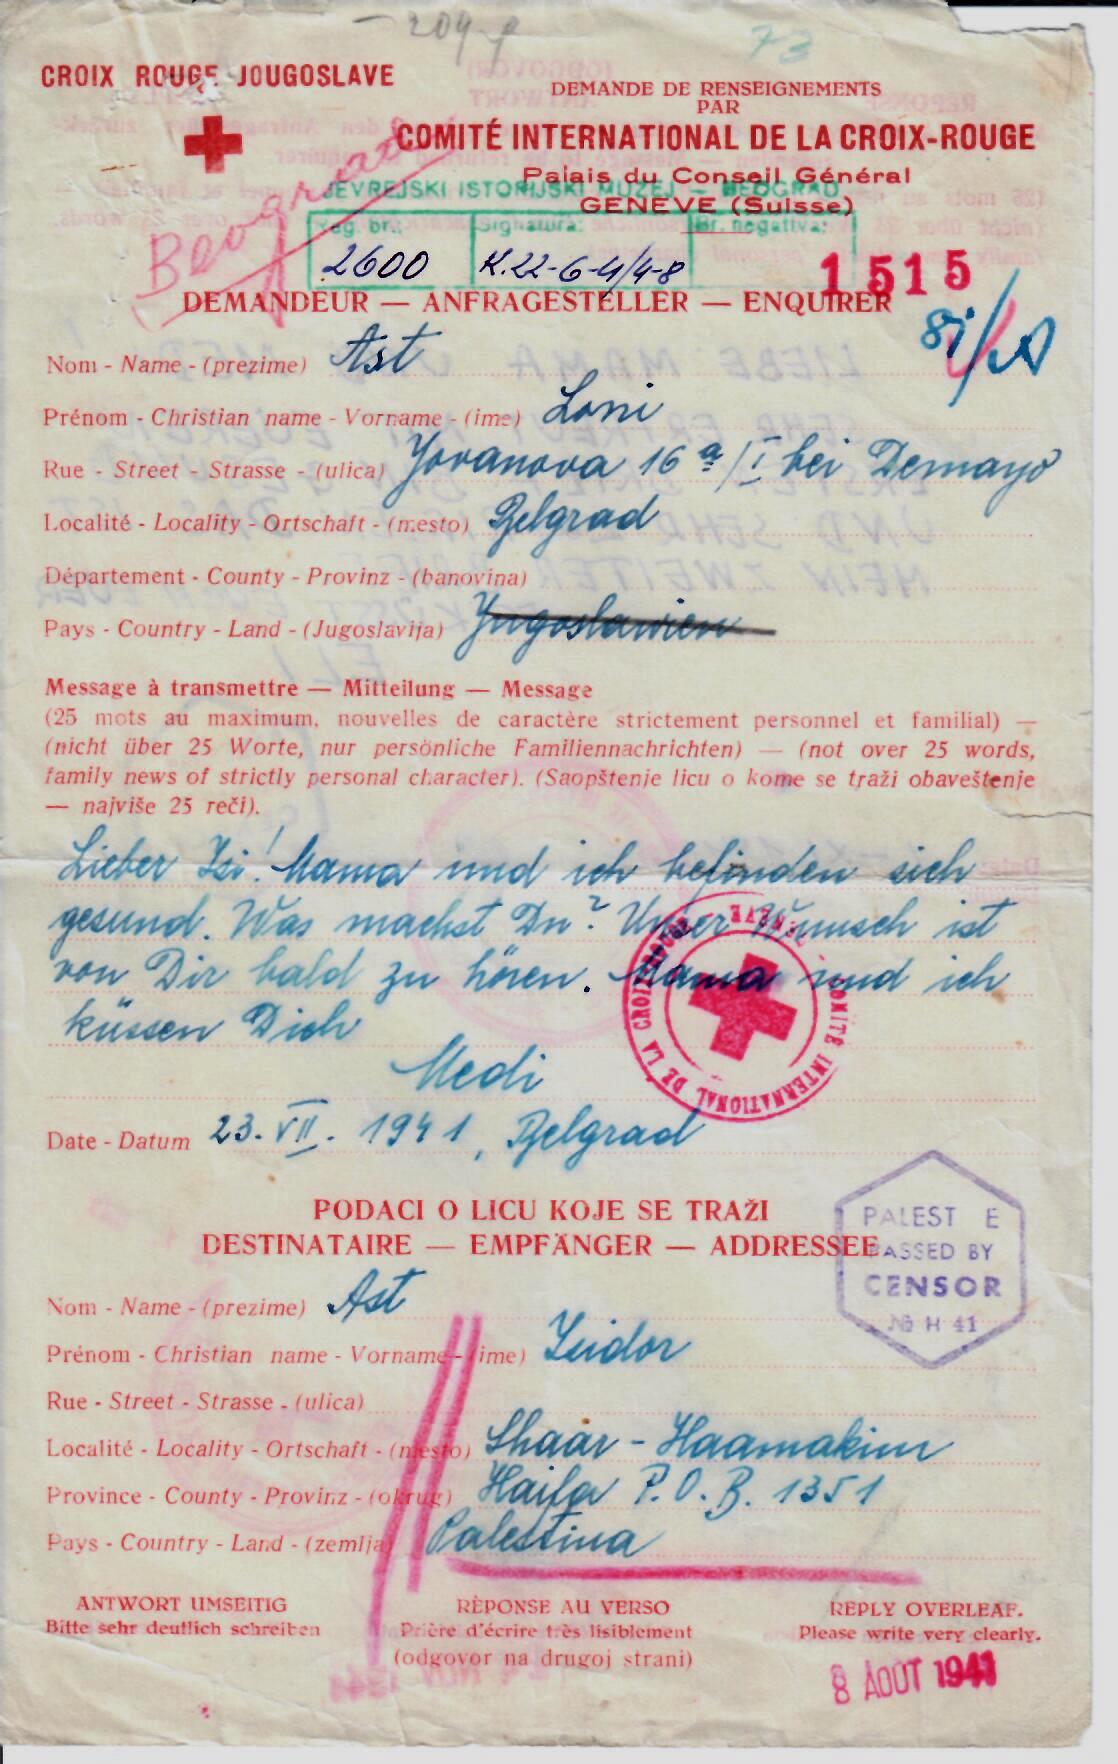 209
73
CROIX ROUGE JOUGOSLAVE
DEMANDE DE RENSEIGNEMENTS
PAR
COMITÉ INTERNATIONAL DE LA CROIX-ROUGE
Palais du Conseil Général
GENEVE (Suisse)
Beograd
JEVREJSKI ISTORIJSKI MUZEJ — BEOGRAD
Reg. br.: Signatura: Br. negativa:
2600 K.22-6-4/4-8
1515
DEMANDEUR — ANFRAGESTELLER — ENQUIRER
Nom - Name - (prezime) Ast
Prénom - Christian name - Vorname - (ime) Loni
Rue - Street - Strasse - (ulica) Yovanova 16 a/I bei Demayo
Localité - Locality - Ortschaft - (mesto) Belgrad
Département - County - Provinz - (banovina)
Pays - Country - Land - (Jugoslavija) Yugoslawien
Message à transmettre — Mitteilung — Message
(25 mots au maximum, nouvelles de caractère strictement personnel et familial) —
(nicht über 25 Worte, nur persönliche Familiennachrichten) — (not over 25 words,
family news of strictly personal character). (Saopštenje licu o kome se traži obaveštenje
— najviše 25 reči).
Lieber Isi! Mama und ich befinden sich
gesund. Was machst Du? Unser Wunsch ist
von Dir bald zu hören. Mama und ich
küssen Dich
Medi
COMITÉ INTERNATIONAL DE LA CROIX-ROUGE GENÈVE
Date - Datum 23. VII. 1941, Belgrad
PODACI O LICU KOJE SE TRAŽI
DESTINATAIRE — EMPFÄNGER — ADDRESSEE
PALEST E
PASSED BY
CENSOR
No H 41
Nom - Name - (prezime) Ast
Prénom - Christian name - Vorname - (ime) Isidor
Rue - Street - Strasse - (ulica)
Localité - Locality - Ortschaft - (mesto) Shaar-Haamakim
Province - County - Provinz - (okrug) Haifa P.O.B. 1351
Pays - Country - Land - (zemlja) Palestina
ANTWORT UMSEITIG RÉPONSE AU VERSO REPLY OVERLEAF.
Bitte sehr deutlich schreiben Prière d'écrire très lisiblement Please write very clearly.
(odgovor na drugoj strani)
8 AOUT 1941